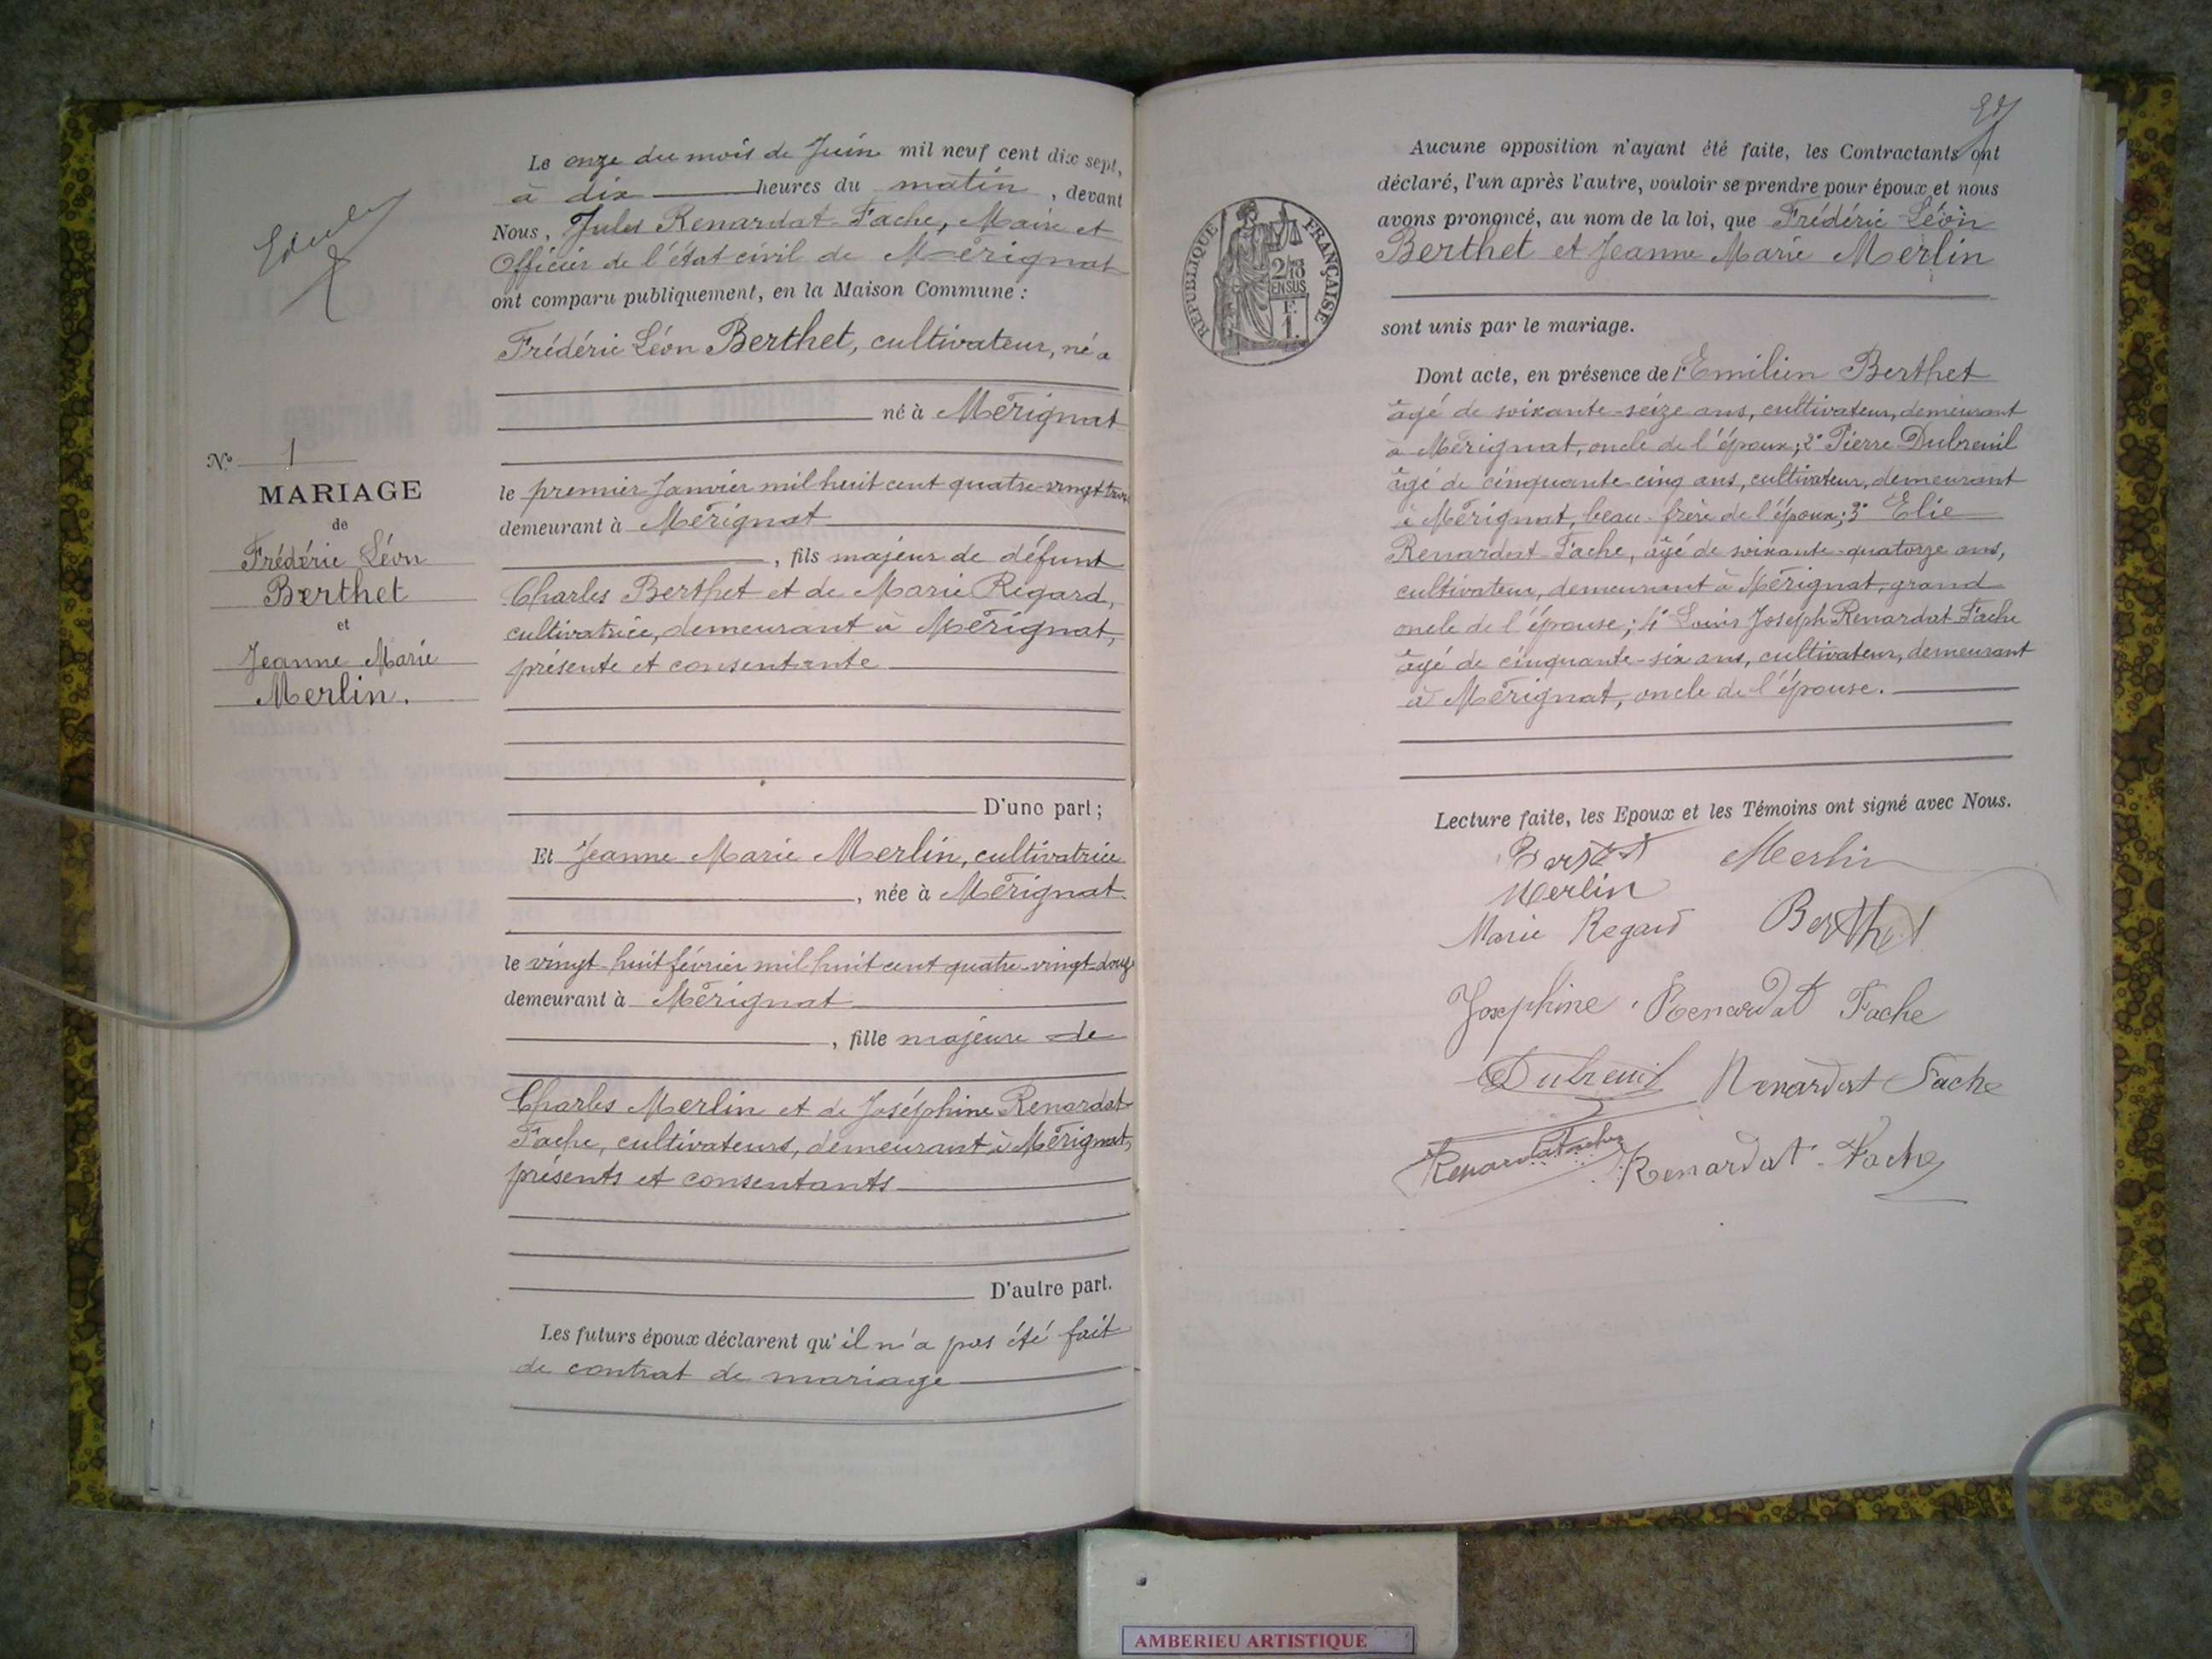 Le onze du mois de Juin mil neuf cent dix sept,
à dix heures du matin, devant
Nous, Jules Renardat-Fache, Maire et
Officier de l'état civil de Mérignat
ont comparu publiquement, en la Maison Commune :
Frédéric Léon Berthet, cultivateur, né à
né à Mérignat
le premier Janvier mil huit cent quatre-vingt trois
demeurant à Mérignat
, fils majeur de défunt
Charles Berthet et de Marie Regard,
cultivatrice, demeurant à Mérignat,
présente et consentante
D'une part ;
Et Jeanne Marie Merlin, cultivatrice
, née à Mérignat
le vingt-huit février mil huit cent quatre-vingt-douze
demeurant à Mérignat
, fille majeure de
Charles Merlin et de Joséphine Renardat
Fache, cultivateurs, demeurant à Mérignat,
présents et consentants
D'autre part.
Les futurs époux déclarent qu'il n'a pas été fait
de contrat de mariage
N° 1
MARIAGE
de
Frédéric Léon
Berthet
et
Jeanne Marie
Merlin.
RÉPUBLIQUE FRANÇAISE
2/10
EN SUS
F.
1.
Aucune opposition n'ayant été faite, les Contractants ont
déclaré, l'un après l'autre, vouloir se prendre pour époux et nous
avons prononcé, au nom de la loi, que Frédéric Léon
Berthet et Jeanne Marie Merlin
sont unis par le mariage.
Dont acte, en présence de 1° Emilien Berthet
âgé de soixante-seize ans, cultivateur, demeurant
à Mérignat, oncle de l'époux; 2° Pierre Dubreuil
âgé de cinquante-cinq ans, cultivateur, demeurant
à Mérignat, beau-frère de l'époux; 3° Elie
Renardat-Fache, âgé de soixante-quatorze ans,
cultivateur, demeurant à Mérignat, grand
oncle de l'épouse; 4° Louis Joseph Renardat Fache
âgé de cinquante-six ans, cultivateur, demeurant
à Mérignat, oncle de l'épouse.
Lecture faite, les Epoux et les Témoins ont signé avec Nous.
Berthet Merlin
Merlin
Marie Regard Berthet
Joséphine Renardat Fache
Dubreuil Renardat Fache
Renardat Fache Renardat-Fache
AMBERIEU ARTISTIQUE